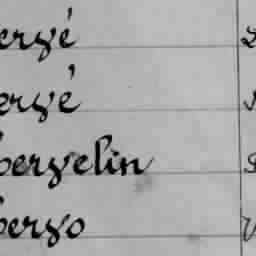 ergé
ergé
bergelin
bergo